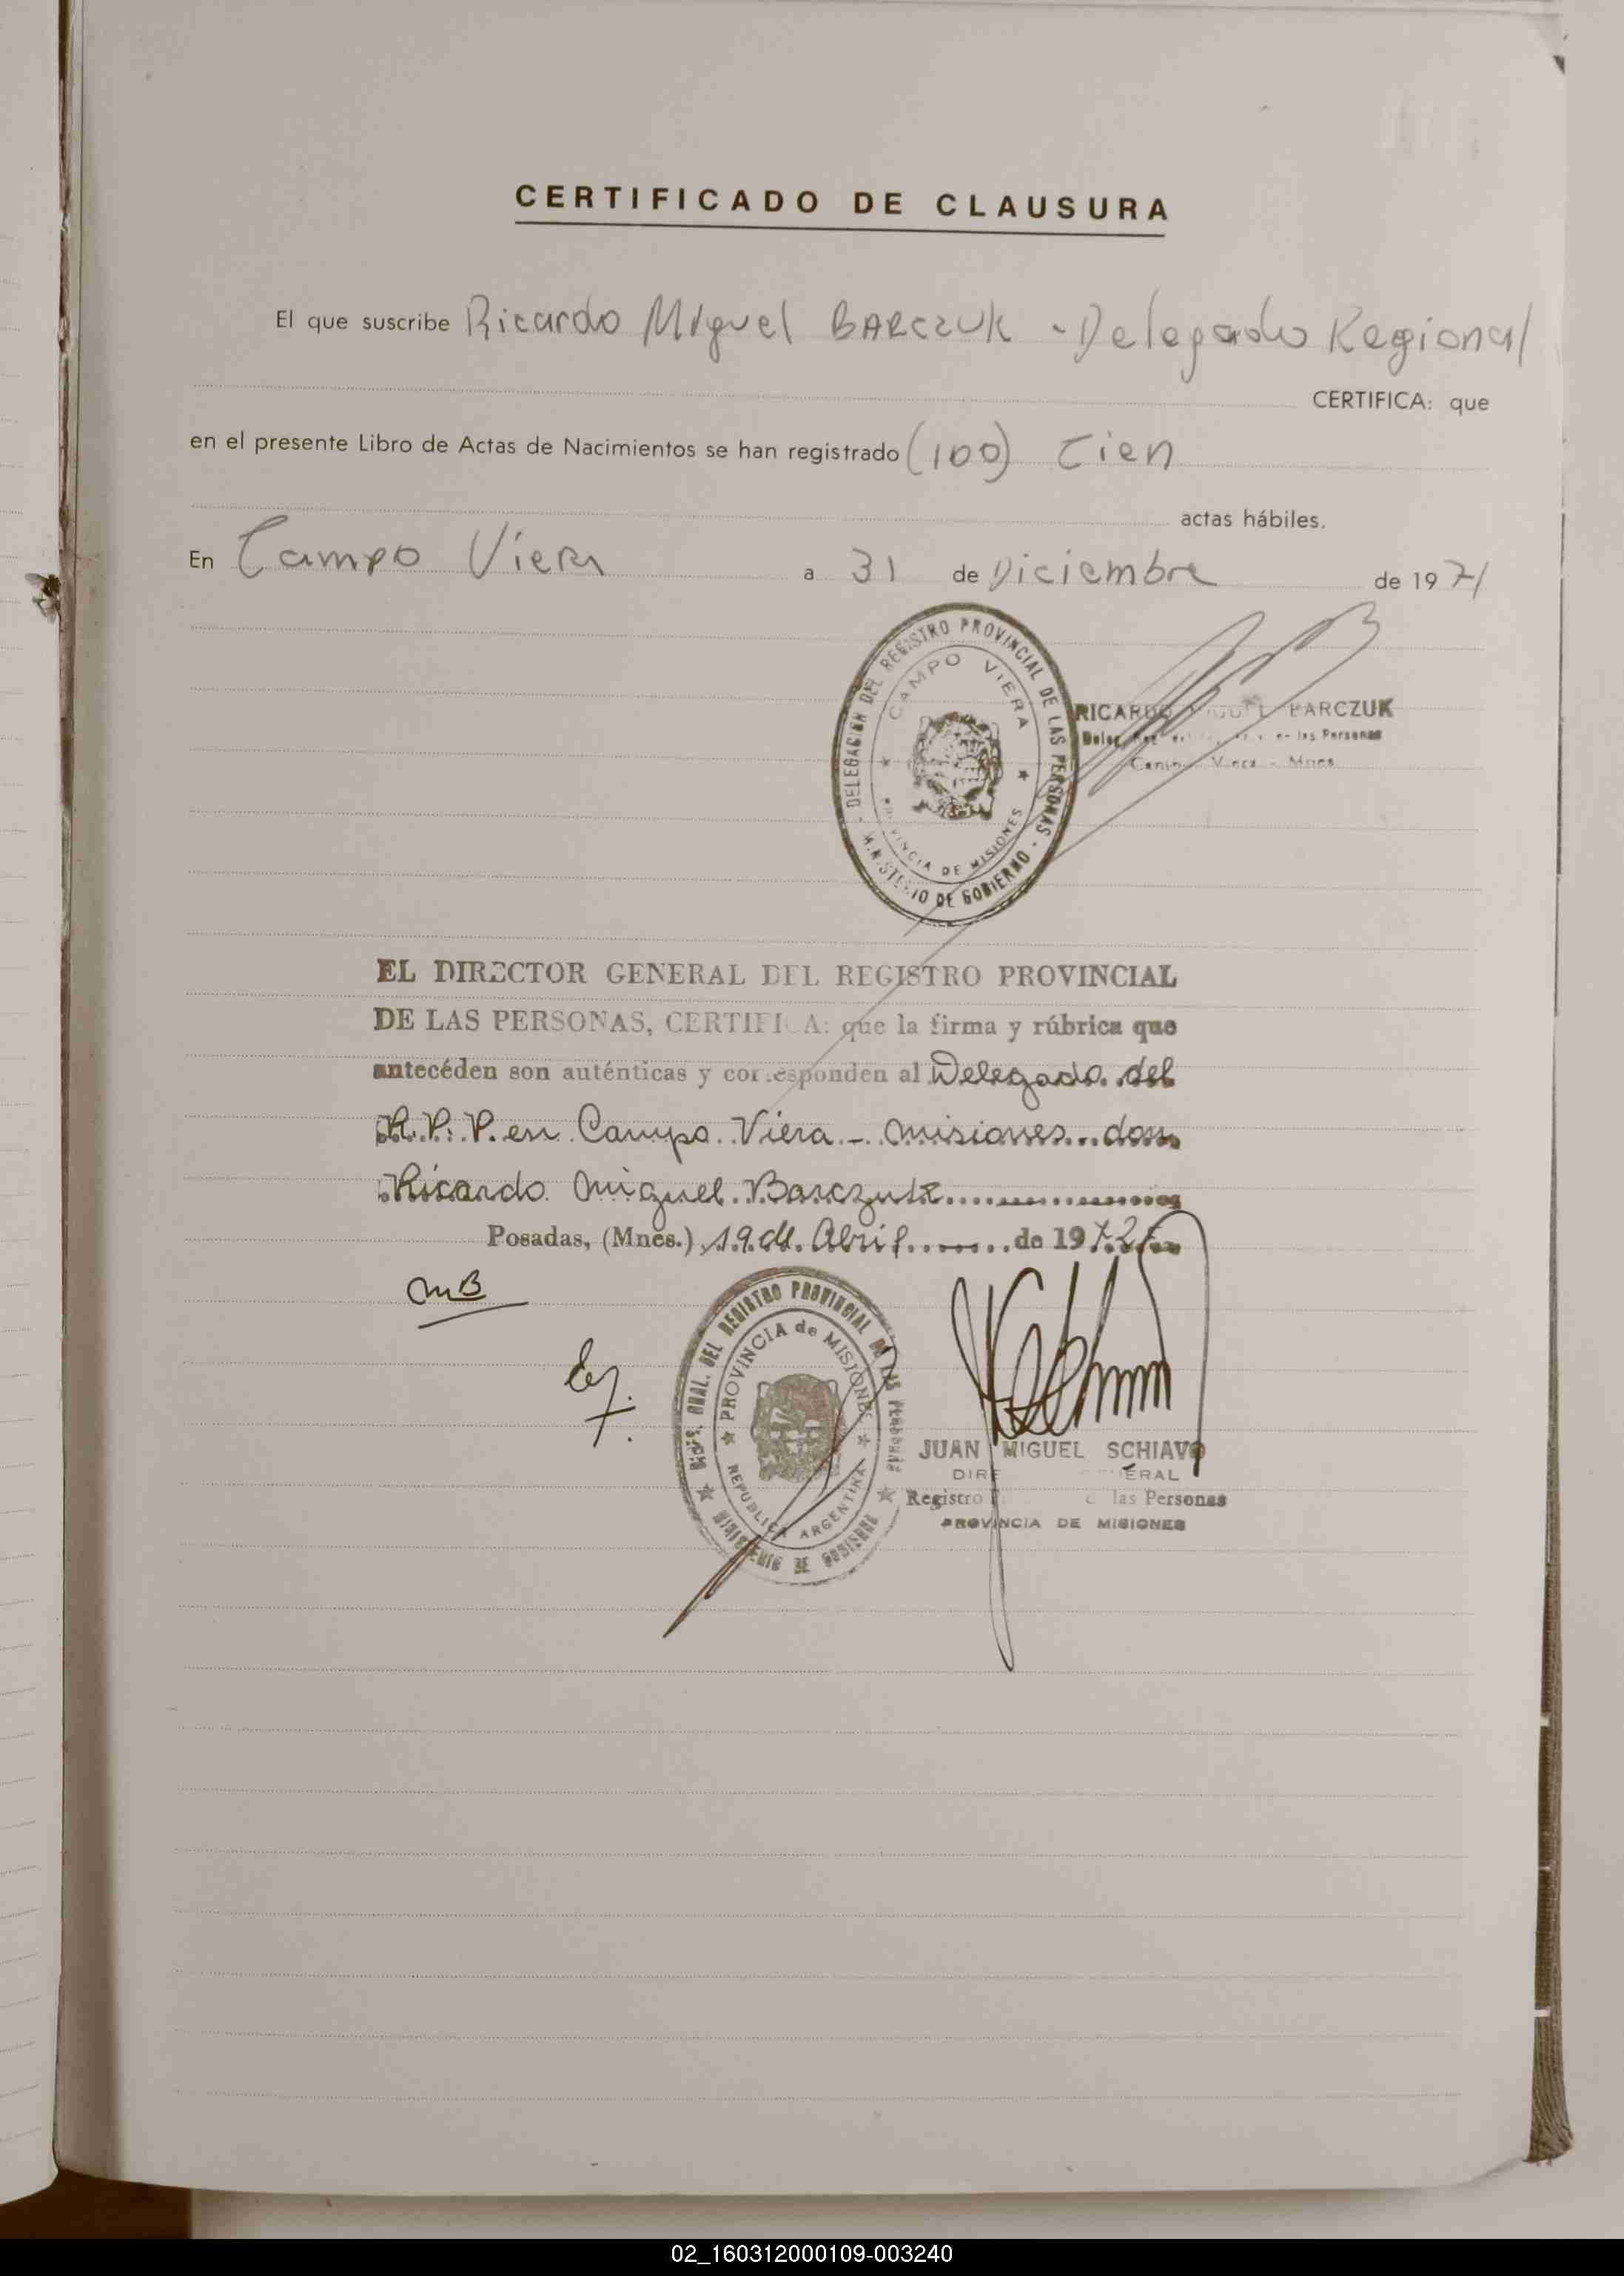 CERTIFICADO DE CLAUSURA
El que suscribe Ricardo Miguel BARCZUK - Delegado Regional
CERTIFICA: que
en el presente Libro de Actas de Nacimientos se han registrado (100) Cien
actas hábiles.
En Campo Viera a 31 de Diciembre de 1971
DELEGACIÓN DEL REGISTRO PROVINCIAL DE LAS PERSONAS - MINISTERIO DE GOBIERNO -
CAMPO VIERA
PROVINCIA DE MISIONES
RICARDO MIGUEL BARCZUK
las Personas
Campo Viera - Mnes
EL DIRECTOR GENERAL DEL REGISTRO PROVINCIAL
DE LAS PERSONAS, CERTIFICA: que la firma y rúbrica que
antecéden son auténticas y corresponden al Delegado del
R.P.P. en Campo Viera - Misiones don
Ricardo Miguel Barczuk
Posadas, (Mnes.) 19 de Abril de 1972
MB
DEL REGISTRO PROVINCIAL DE LAS PERSONAS MINISTERIO DE GOBIERNO
PROVINCIA de MISIONES
REPUBLICA ARGENTINA
JUAN MIGUEL SCHIAVO
DIRECTOR GENERAL
Registro las Personas
PROVINCIA DE MISIONES
02_160312000109-003240